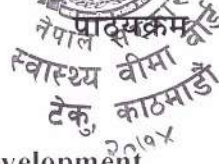 पाठ्यक्रम
नेपाल
स्वास्थ्य वीमा वोर्ड
टेकु, काठमाडौं
२०७५
velopment